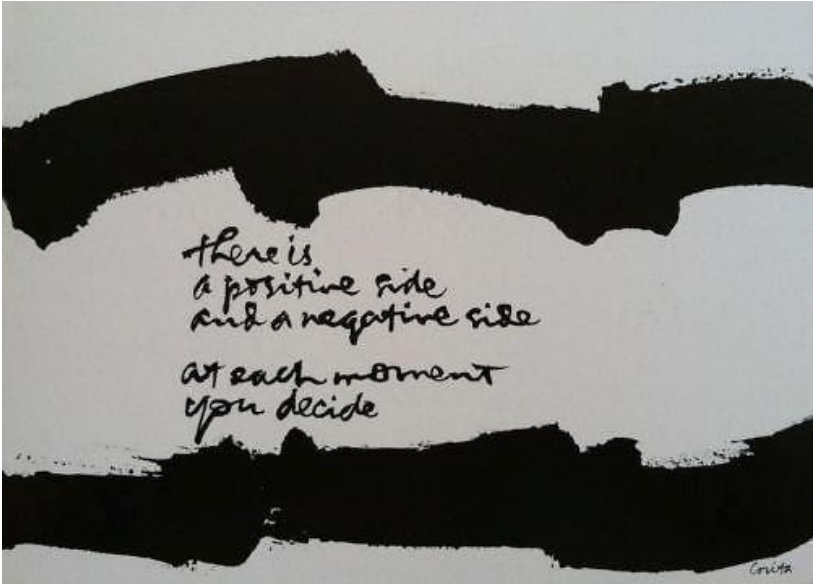 there is
a positive side
and a negative side
at each moment
you decide
Corita